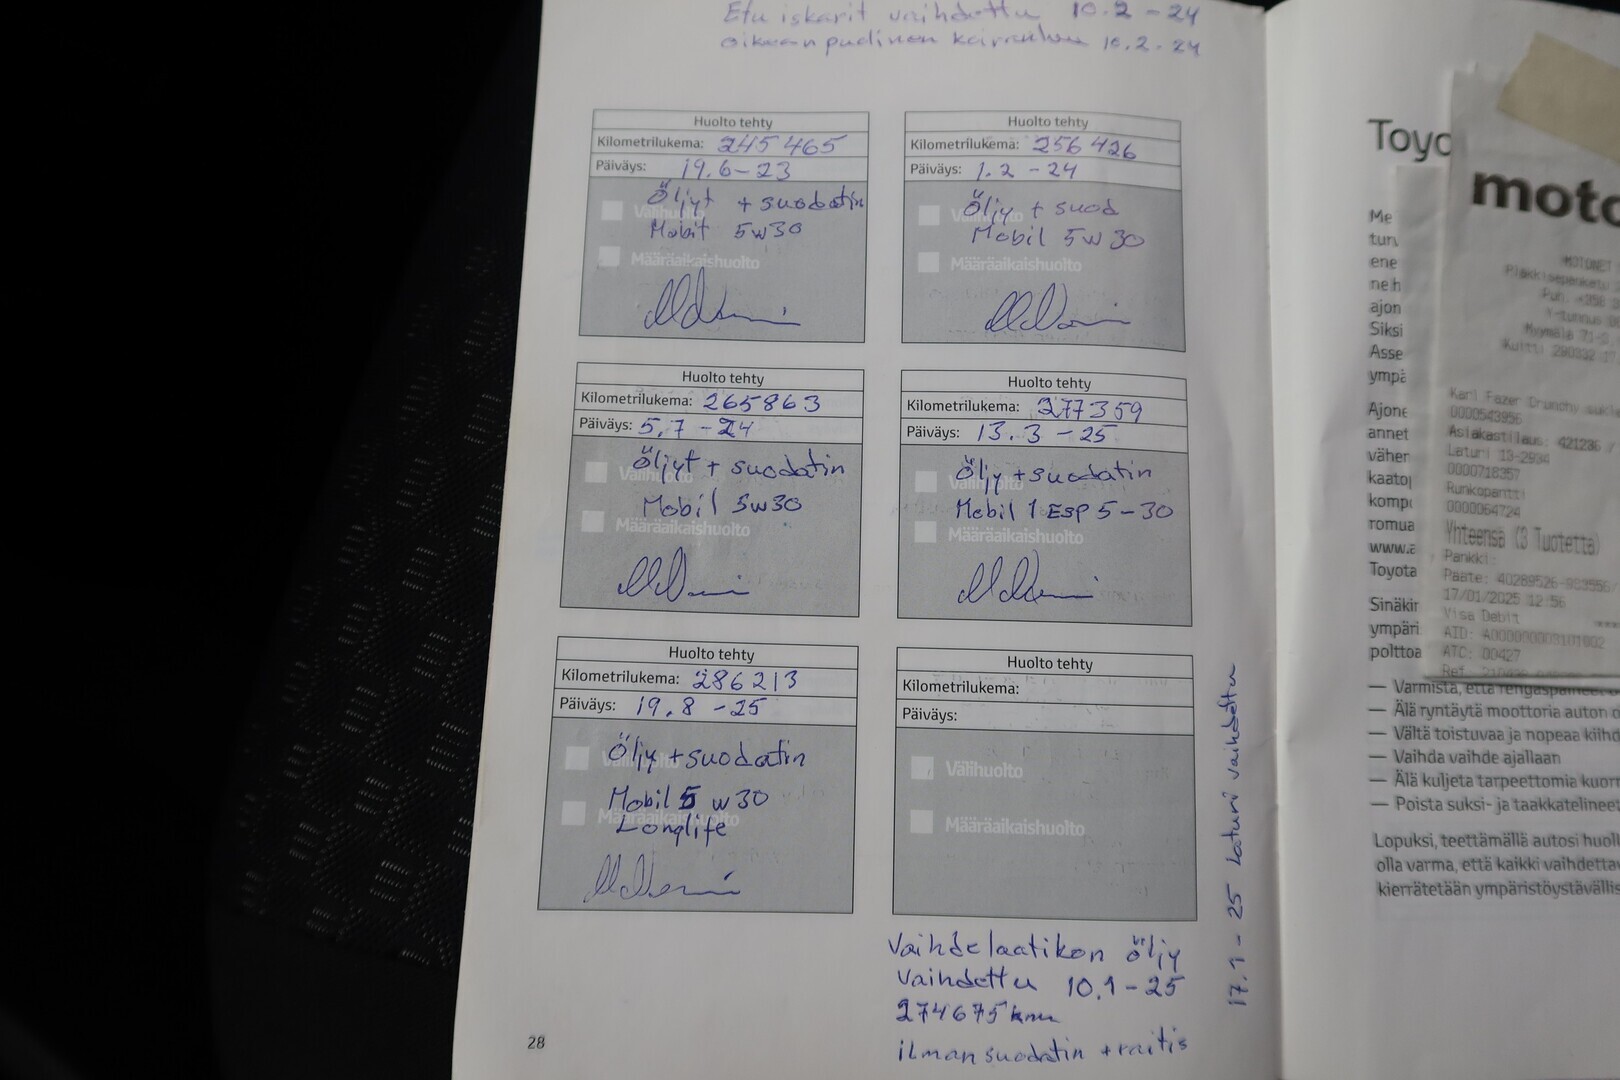 Etu iskarit vaihdettu 10.2-24
10.2-24
Huolto tehty
Kilometrilukema: 245465
Päiväys: 19.6-23
Öljyt + suodatin
Välihuolto
Mobil 5w30
Määräaikaishuolto
Huolto tehty
Kilometrilukema: 256426
Päiväys: 1.2-24
Öljy + suod
Välihuolto
Mobil 5w30
Määräaikaishuolto
Huolto tehty
Kilometrilukema: 265863
Päiväys: 5.7-24
Öljyt + suodatin
Välihuolto
Mobil 5w30
Määräaikaishuolto
Huolto tehty
Kilometrilukema: 277359
Päiväys: 13.3-25
Öljy + suodatin
Välihuolto
Mobil 1 ESP 5-30
Määräaikaishuolto
Huolto tehty
Kilometrilukema: 286213
Päiväys: 19.8-25
Öljy + suodatin
Välihuolto
Mobil 5w30
Määräaikaishuolto
Longlife
Huolto tehty
Kilometrilukema:
Päiväys:
Välihuolto
Määräaikaishuolto
Vaihdelaatikon öljy
vaihdettu 10.1-25
274675 km
ilman suodatin + raitis
17.1-25 Laturi vaihdettu
28
Toyo
Me
tun
ene
ne h
ajon
Siksi
Asse
ympä
Ajone
annet
väher
kaatop
kompo
romua
www.a
Toyota
Sinäkin
ympäri
polttoa
— Varmista, että rengaspaineet
— Älä ryntäytä moottoria auton o
— Vältä toistuvaa ja nopeaa kiiho
— Vaihda vaihde ajallaan
— Älä kuljeta tarpeettomia kuorm
— Poista suksi- ja taakkatelineet
Lopuksi, teettämällä autosi huoll
olla varma, että kaikki vaihdettav
kierrätetään ympäristöystävällis
moto
MOTONET
Karl Fazer Crunchy sukl
0000543956
Asiakastilaus: 421236 /
Laturi 13-2934
0000718357
Runkopantti
0000064724
Yhteensä (3 Tuotetta)
Pankki:
17/01/2025 12:56
Visa Debit
AID: A000000003101002
ATC: 00427
Ref.